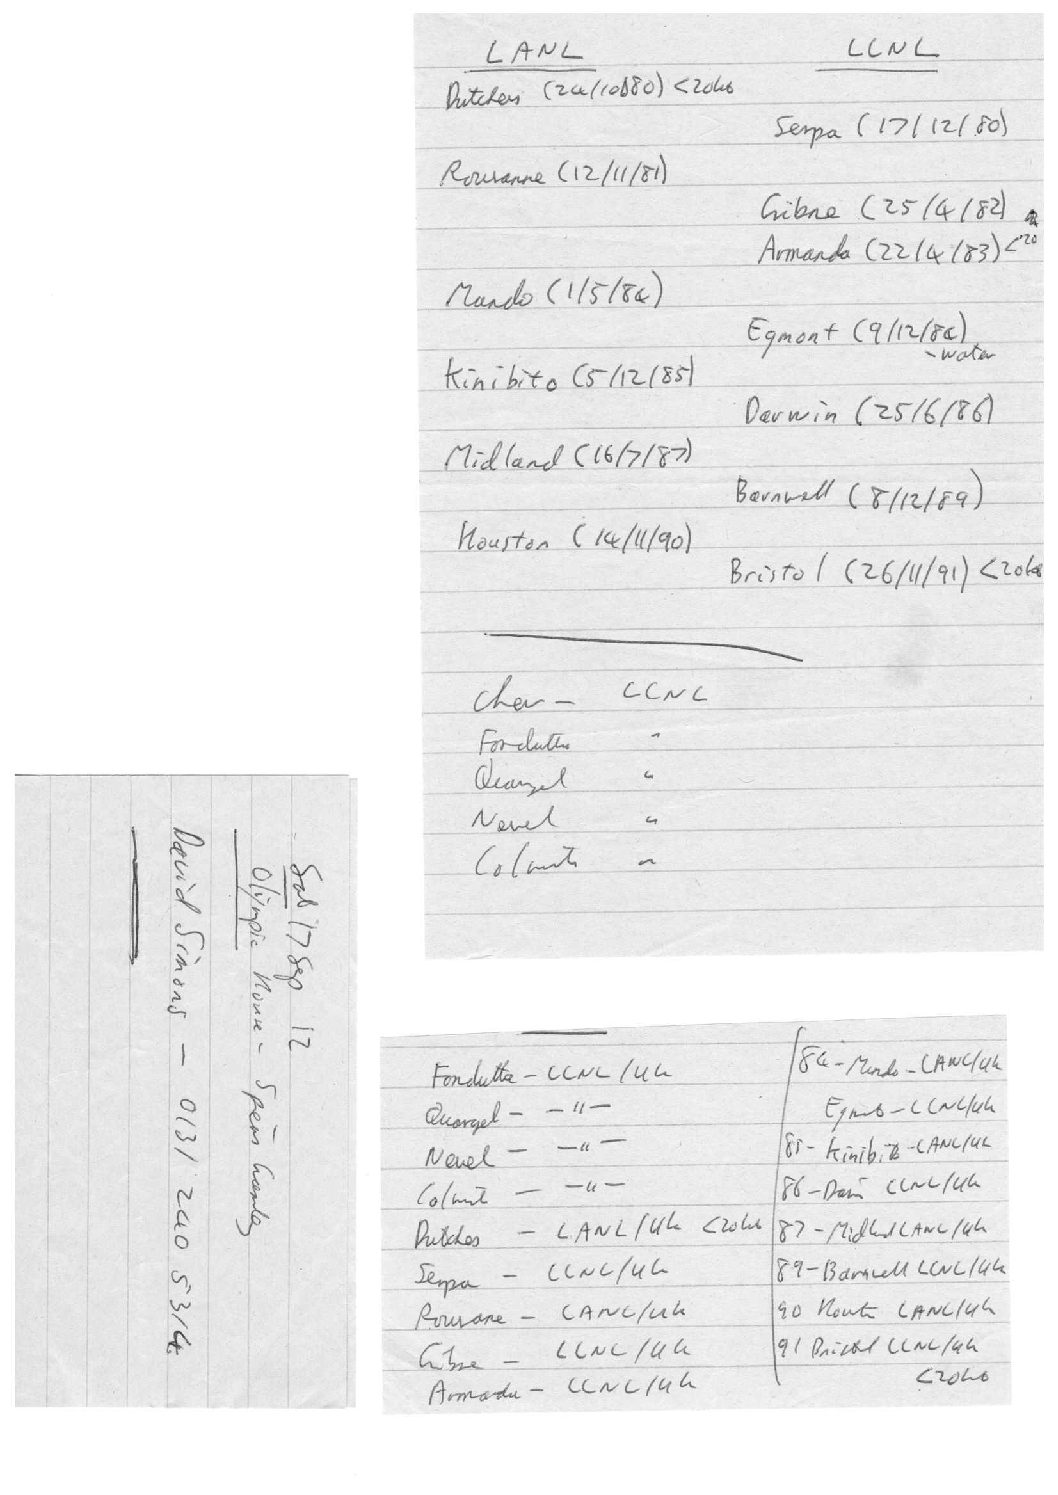 LANL LCNL
Dutchess (24/10/80) <20kt
Serpa (17/12/80)
Rousanne (12/11/81)
Gibne (25/4/82)
Armanda (22/4/83) <20
Mundo (1/5/84)
Egmont (9/12/84)
- water
Kinibito (5/12/85)
Darwin (25/6/86)
Midland (16/7/87)
Barnwell (8/12/89)
Houston (14/11/90)
Bristol (26/11/91) <20kt
LCNL
Fondutta "
Quargel "
Nevel "
"
Sat 17 Sep 12
Olympic House -
David Simons - 0131 240 5314
Fondutta - LCNL/UK
Quargel - -"-
Nevel - -"-
- -"-
Dutches - LANL/UK <20kt
Serpa - LCNL/UK
Rousane - LANL/UK
Gibne - LCNL/UK
Armada - LCNL/UK
84 - Mundo - LANL/UK
Egmont - LCNL/UK
85 - Kinibito - LANL/UK
86 - LCNL/UK
87 - Midland LANL/UK
89 - Barnwell LCNL/UK
90 LANL/UK
91 Bristol LCNL/UK
<20kt